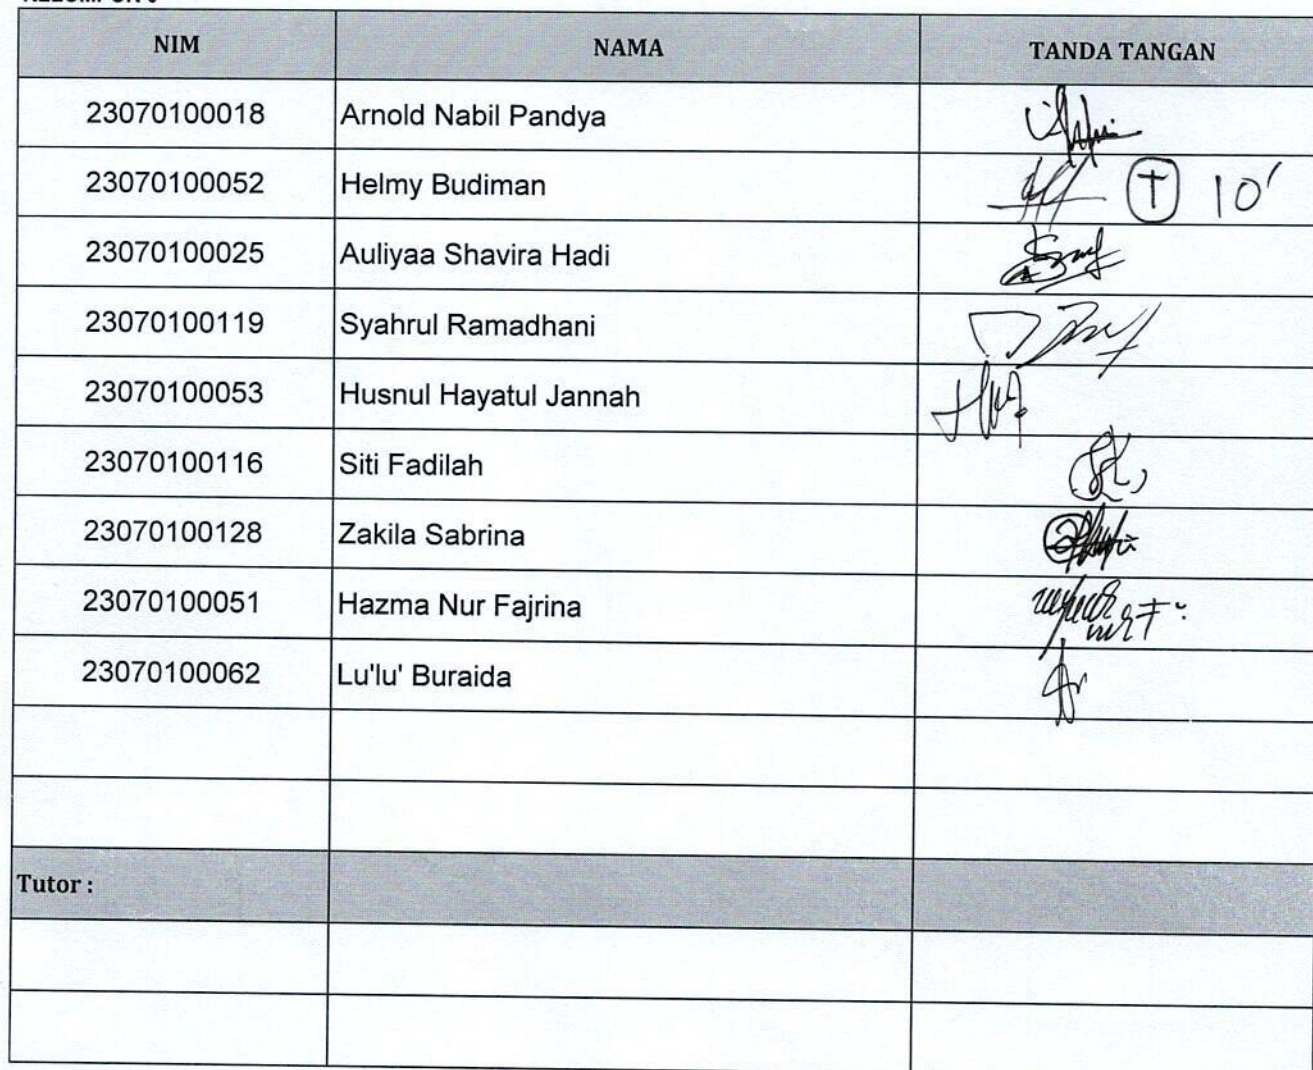 NIM NAMA TANDA TANGAN
23070100018 Arnold Nabil Pandya
23070100052 Helmy Budiman T 10'
23070100025 Auliyaa Shavira Hadi
23070100119 Syahrul Ramadhani
23070100053 Husnul Hayatul Jannah
23070100116 Siti Fadilah
23070100128 Zakila Sabrina
23070100051 Hazma Nur Fajrina
23070100062 Lu'lu' Buraida
Tutor :